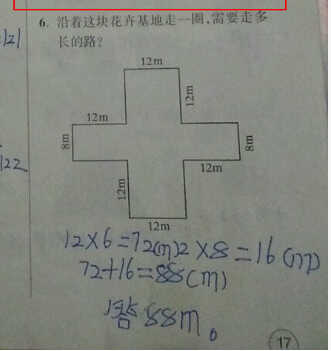 6. 沿着这块花卉基地走一圈,需要走多
长的路?
12m
12m
12m
8m
8m
12m
12m
12m
12×6=72(m)2×8=16(m)
72+16=88(m)
答88m。
17